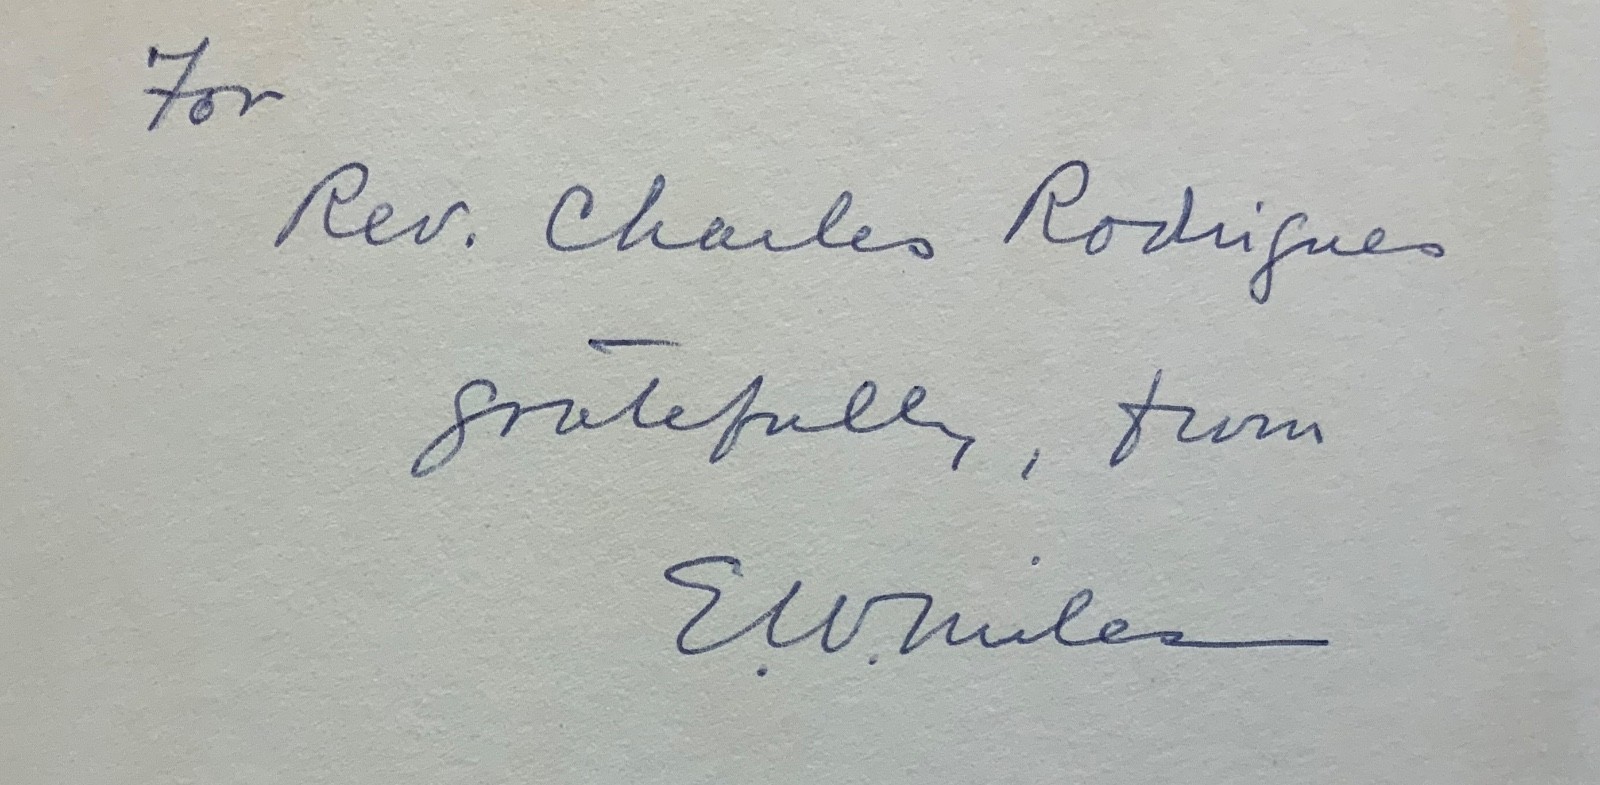 For
Rev. Charles Rodrigues
gratefully, from
E.W. Miles